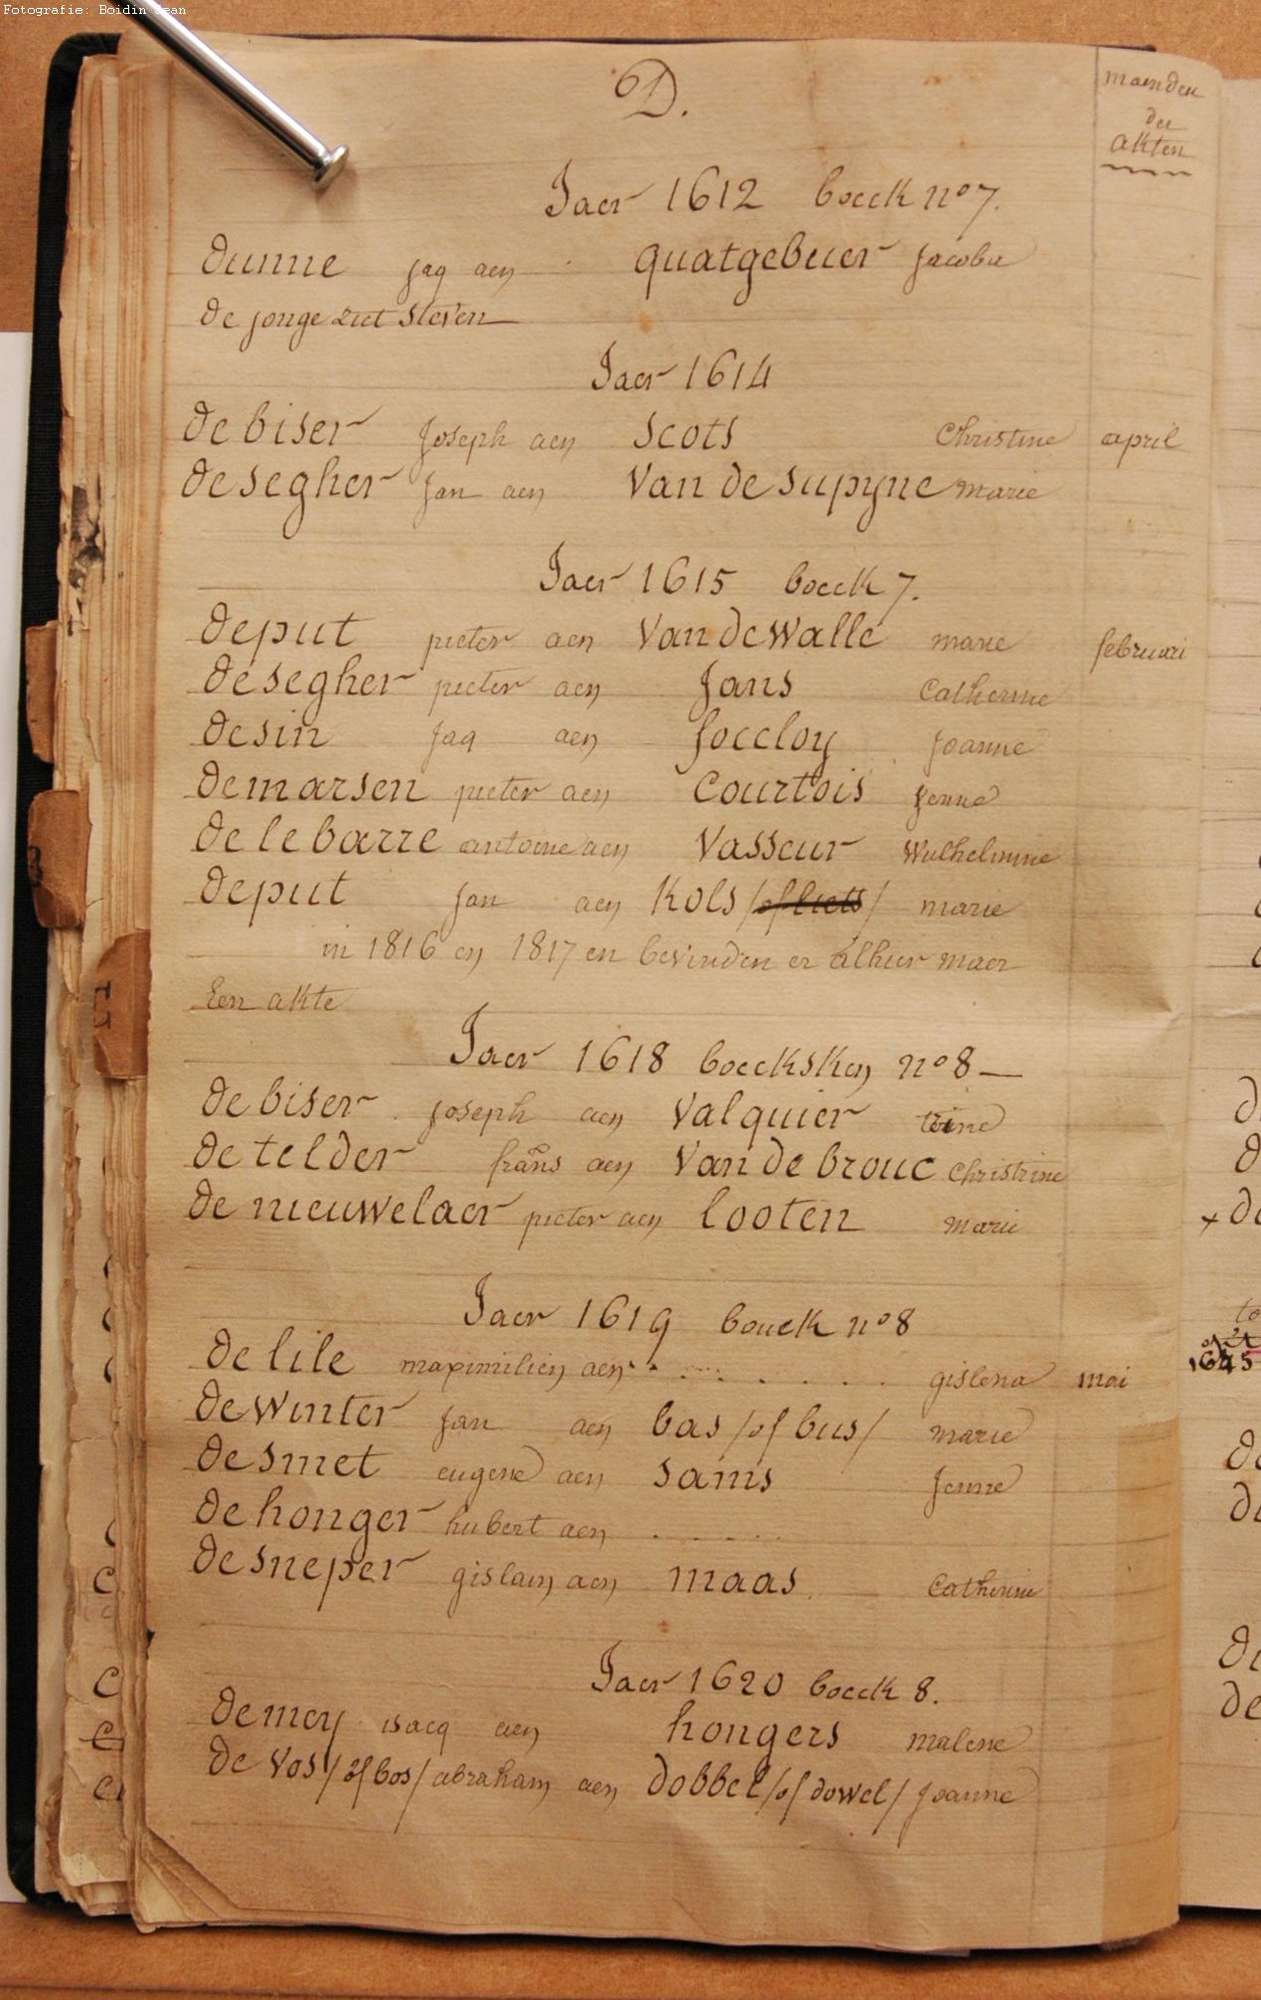 Fotografie: Boidin Jean
D.
maenden
der
akten
Jaer 1612 boeck no 7.
dunne jaq aen quatgebuer jacoba
de jonge ziet steven
Jaer 1614
de biser joseph aen scots Christine april
de segher jan aen van de supyne marie
Jaer 1615 boeck 7.
deput pieter aen van de walle marie februari
de segher pieter aen jans Catherine
desin jaq aen joccloy joanne
demarsen pieter aen Courtois jenne
de le barre antoine aen vasseur wulhelmine
deput jan aen kols / of liets / marie
in 1816 en 1817 en bevinden er alhier maer
Een akte
Jaer 1618 boecksken no 8
de biser joseph aen valquier trine
de telder frans aen van de brouc christrine
de nieuwelaer pieter aen looten marie
Jaer 1619 bouck no 8
de lile maximilien aen . . . . . . . gislena mai
de winter jan aen bas / of bus / marie
de smet eugene aen sams jenne
de honger hubert aen . . . . . .
de sneper gislain aen maas Catherine
Jaer 1620 boeck 8.
demey isacq aen hongers malene
de vos / of bos / abraham aen dobbel / of dowel / joanne
1645